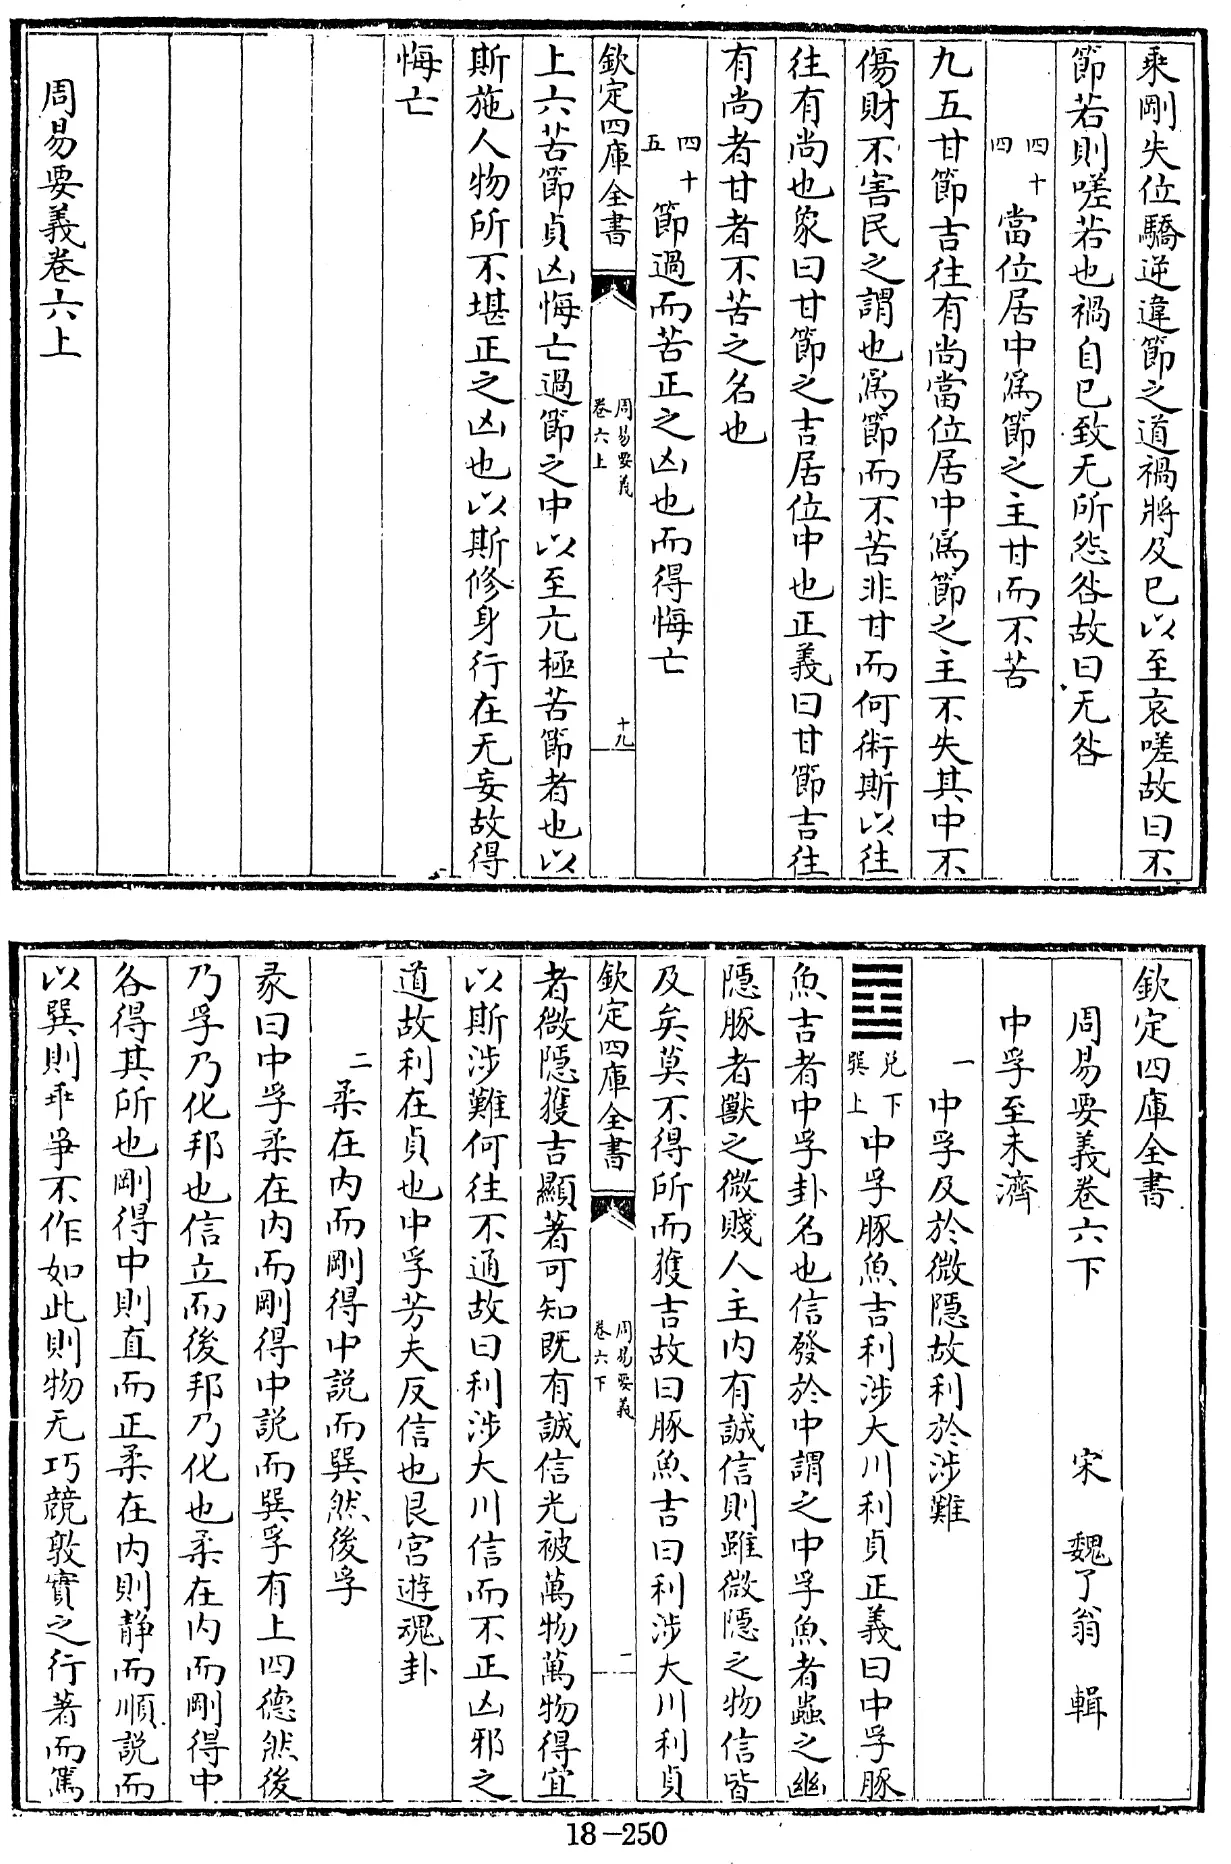 乘剛失位驕逆違節之道禍將及已以至哀嗟故曰不
節若則嗟若也禍自已致无所怨咎故曰无咎
四十四 當位居中爲節之主甘而不苦
九五甘節吉往有尚當位居中爲節之主不失其中不
傷財不害民之謂也爲節而不苦非甘而何術斯以往
往有尚也象曰甘節之吉居位中也正義曰甘節吉往
有尚者甘者不苦之名也
四十五 節過而苦正之凶也而得悔亡
欽定四庫全書 周易要義 卷六上 十九
上六苦節貞凶悔亡過節之中以至亢極苦節者也以
斯施人物所不堪正之凶也以斯修身行在无妄故得
悔亡
周易要義卷六上
欽定四庫全書
周易要義卷六下 宋 魏了翁 輯
中孚至未濟
一 中孚及於微隱故利於涉難
䷼ 兌下巽上 中孚豚魚吉利涉大川利貞正義曰中孚豚
魚吉者中孚卦名也信發於中謂之中孚魚者蟲之幽
隱豚者獸之微賤人主内有誠信則雖微隱之物信皆
及矣莫不得所而獲吉故曰豚魚吉曰利涉大川利貞
欽定四庫全書 周易要義 卷六下 一
者微隱獲吉顯著可知既有誠信光被萬物萬物得宜
以斯涉難何往不通故曰利涉大川信而不正凶邪之
道故利在貞也中孚芳夫反信也艮宮遊魂卦
二 柔在内而剛得中說而巽然後孚
彖曰中孚柔在内而剛得中說而巽孚有上四德然後
乃孚乃化邦也信立而後邦乃化也柔在内而剛得中
各得其所也剛得中則直而正柔在内則静而順說而
以巽則乖爭不作如此則物无巧競敦實之行著而篤
18-250